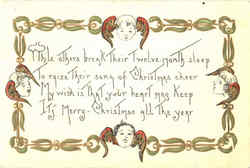 While others break their twelve-month sleep
To raise their song of Christmas cheer
My wish is that your heart may keep
It's Merry Christmas all the year